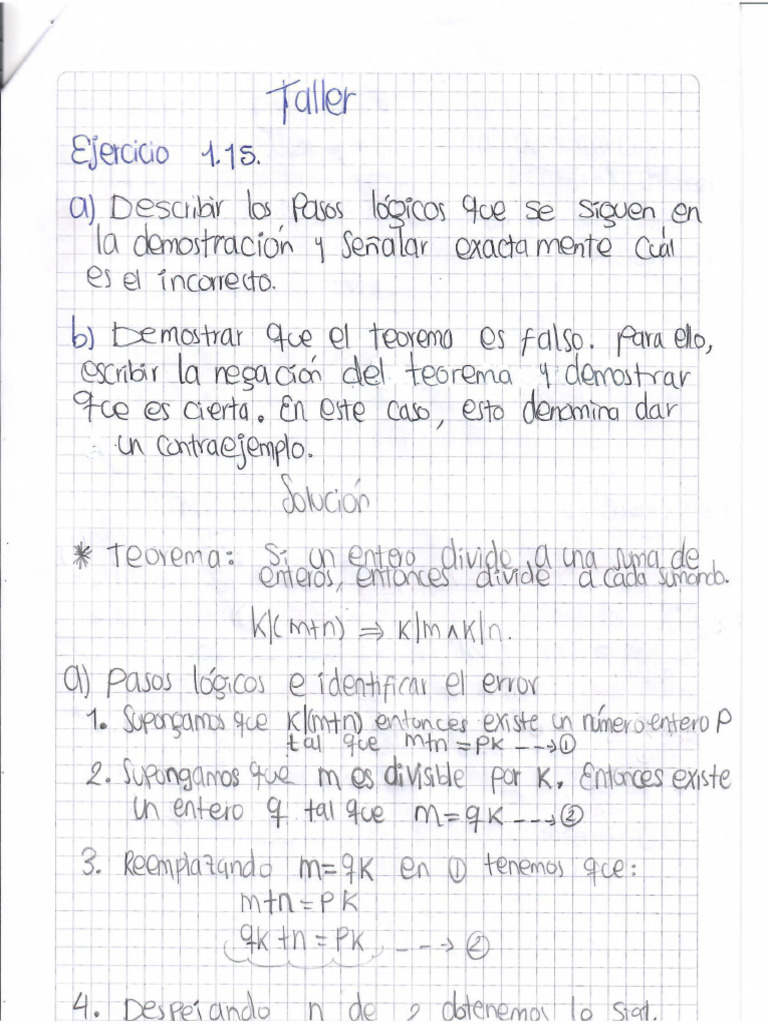 Taller
Ejercicio 1.15.
a) Describir los pasos lógicos que se siguen en
la demostración y señalar exactamente cuál
es el incorrecto.
b) Demostrar que el teorema es falso. para ello,
escribir la negación del teorema y demostrar
que es cierta. En este caso, esto denomina dar
un contraejemplo.
Solución
* Teorema: Si un entero divide a una suma de
enteros, entonces divide a cada sumando.
K|(m+n) ⇒ K|m ∧ K|n.
a) Pasos lógicos e identificar el error
1. Supongamos que K|(m+n) entonces existe un número entero P
tal que m+n = PK ---→①
2. Supongamos que m es divisible por K. Entonces existe
un entero q tal que m = qK ---→②
3. Reemplazando m=qK en ① tenemos que:
m+n = PK
qK+n = PK ---→②
4. Despejando n de 2 obtenemos lo sigt.